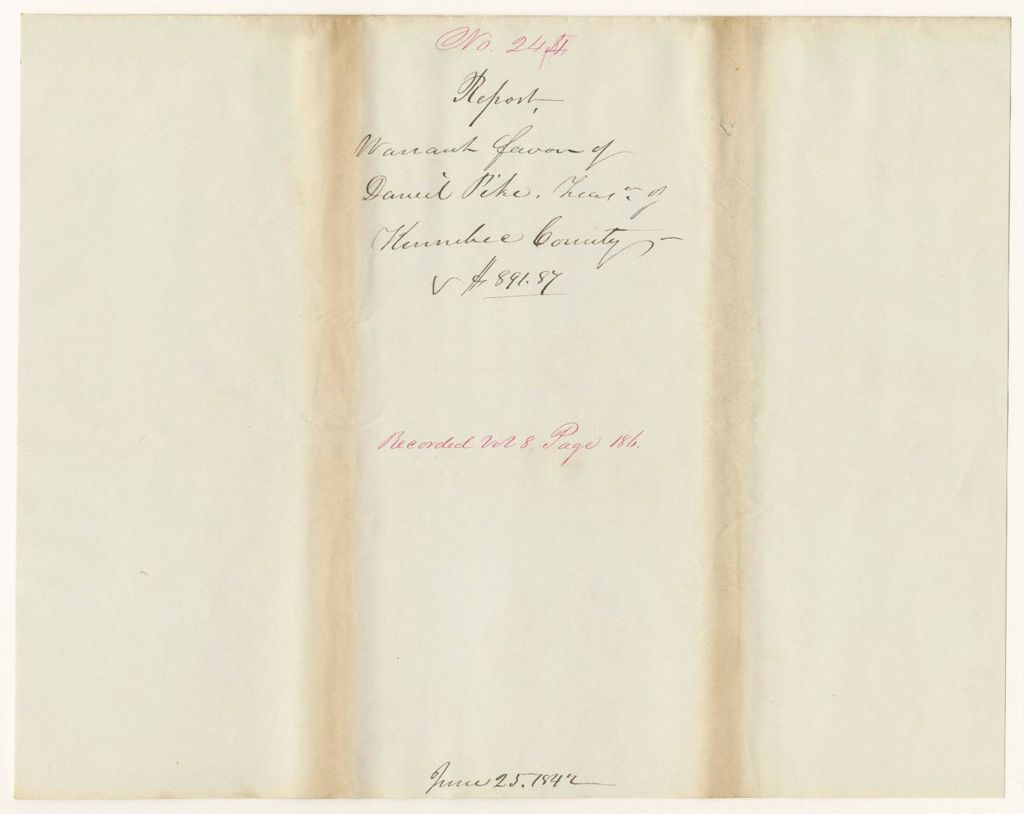 No. 24
Report,
Warrant favor of
Daniel Pike. Treasr. of
Kennebec County,
$891.87
Recorded Vol 8. Page 186.
June 25. 1842